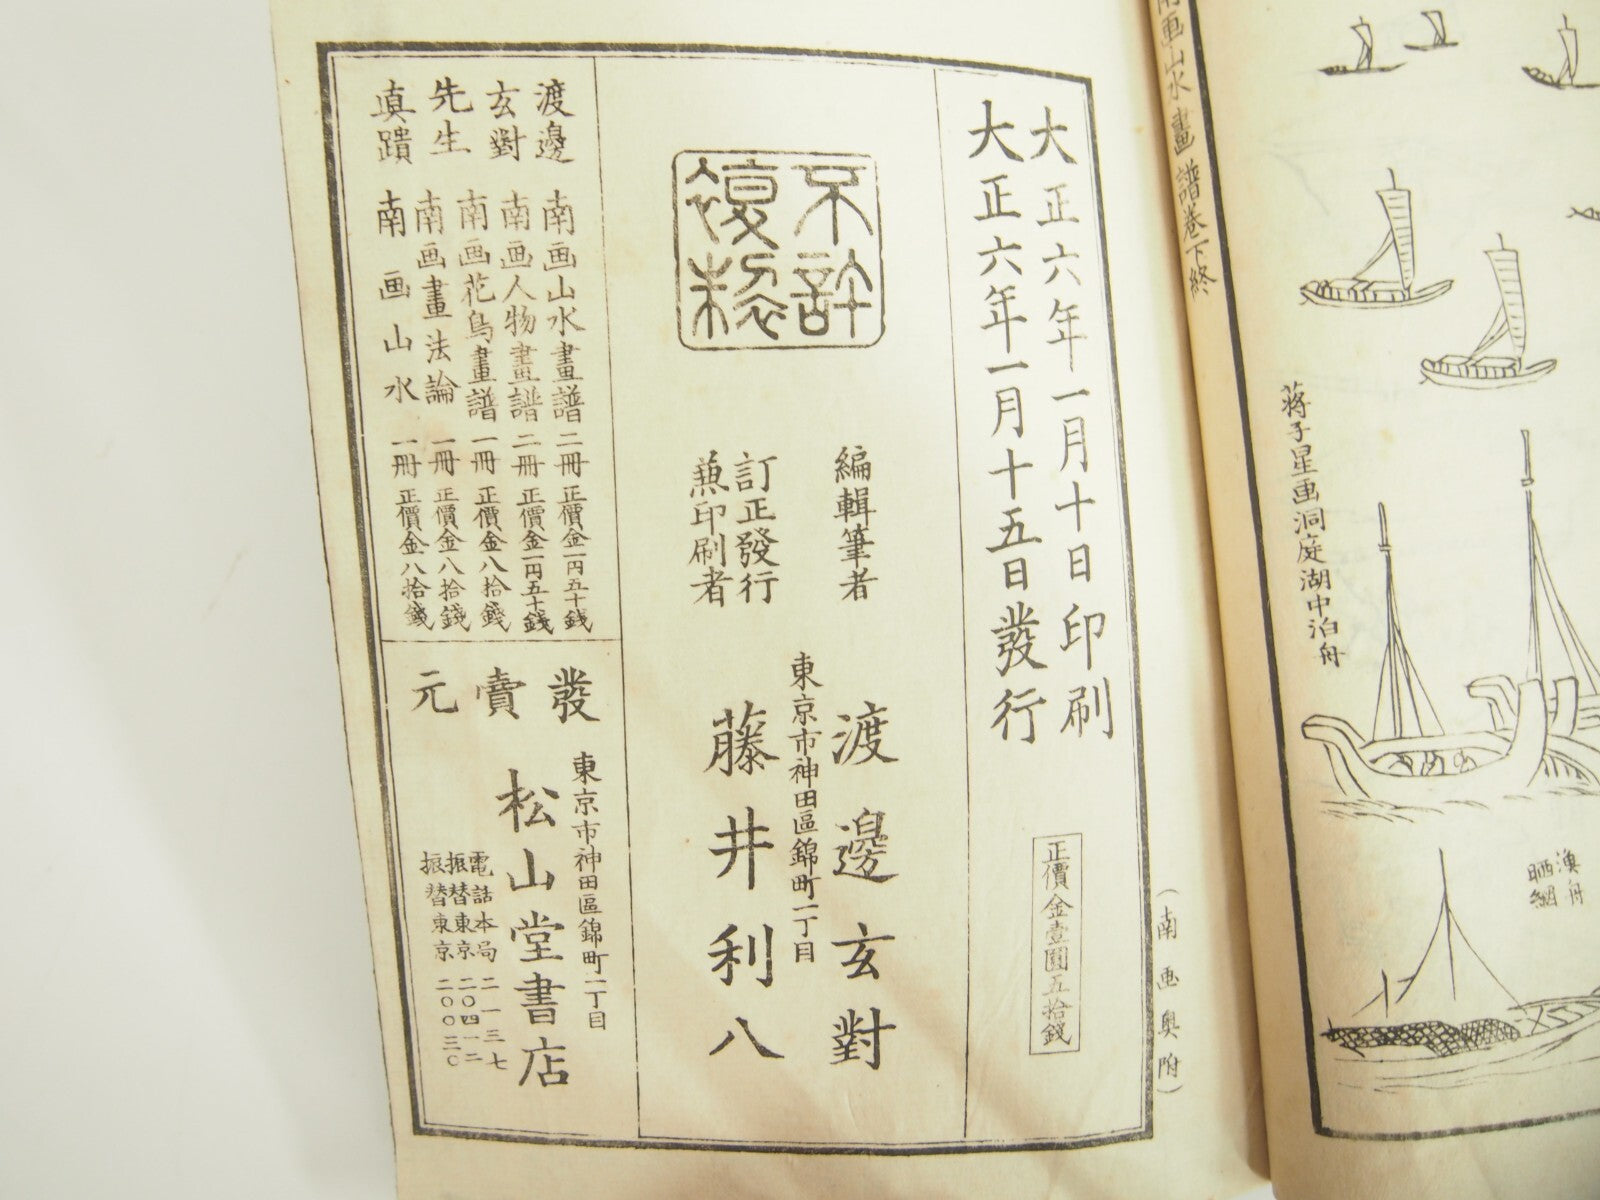 南画山水畫譜卷下終
蒋子星画洞庭湖中泊舟
漁舟
晒網
大正六年一月十日印刷
大正六年一月十五日發行
正價金壹圓五拾錢
不許
複製
編輯筆者 渡邊玄對
東京市神田區錦町一丁目
訂正發行
兼印刷者 藤井利八
渡邊
玄對
先生
眞蹟
南画山水畫譜 二冊 正價金一円五十錢
南画人物畫譜 二冊 正價金一円五十錢
南画花鳥畫譜 一冊 正價金八拾錢
南画畫法論 一冊 正價金八拾錢
南画山水 一冊 正價金八拾錢
發賣元
東京市神田區錦町一丁目
松山堂書店
電話本局二一三七
振替東京二〇四一二
振替東京二〇〇三〇
(南画奥附)